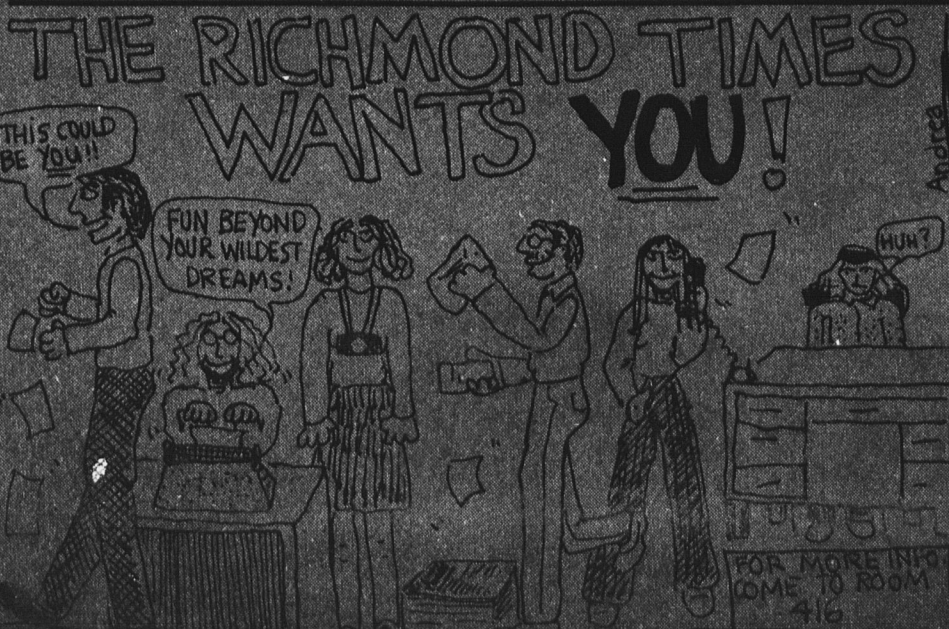 THE RICHMOND TIMES
WANTS YOU!
Andrea
THIS COULD
BE YOU!!
FUN BEYOND
YOUR WILDEST
DREAMS!
HUH?
FOR MORE INFO.
COME TO ROOM
416